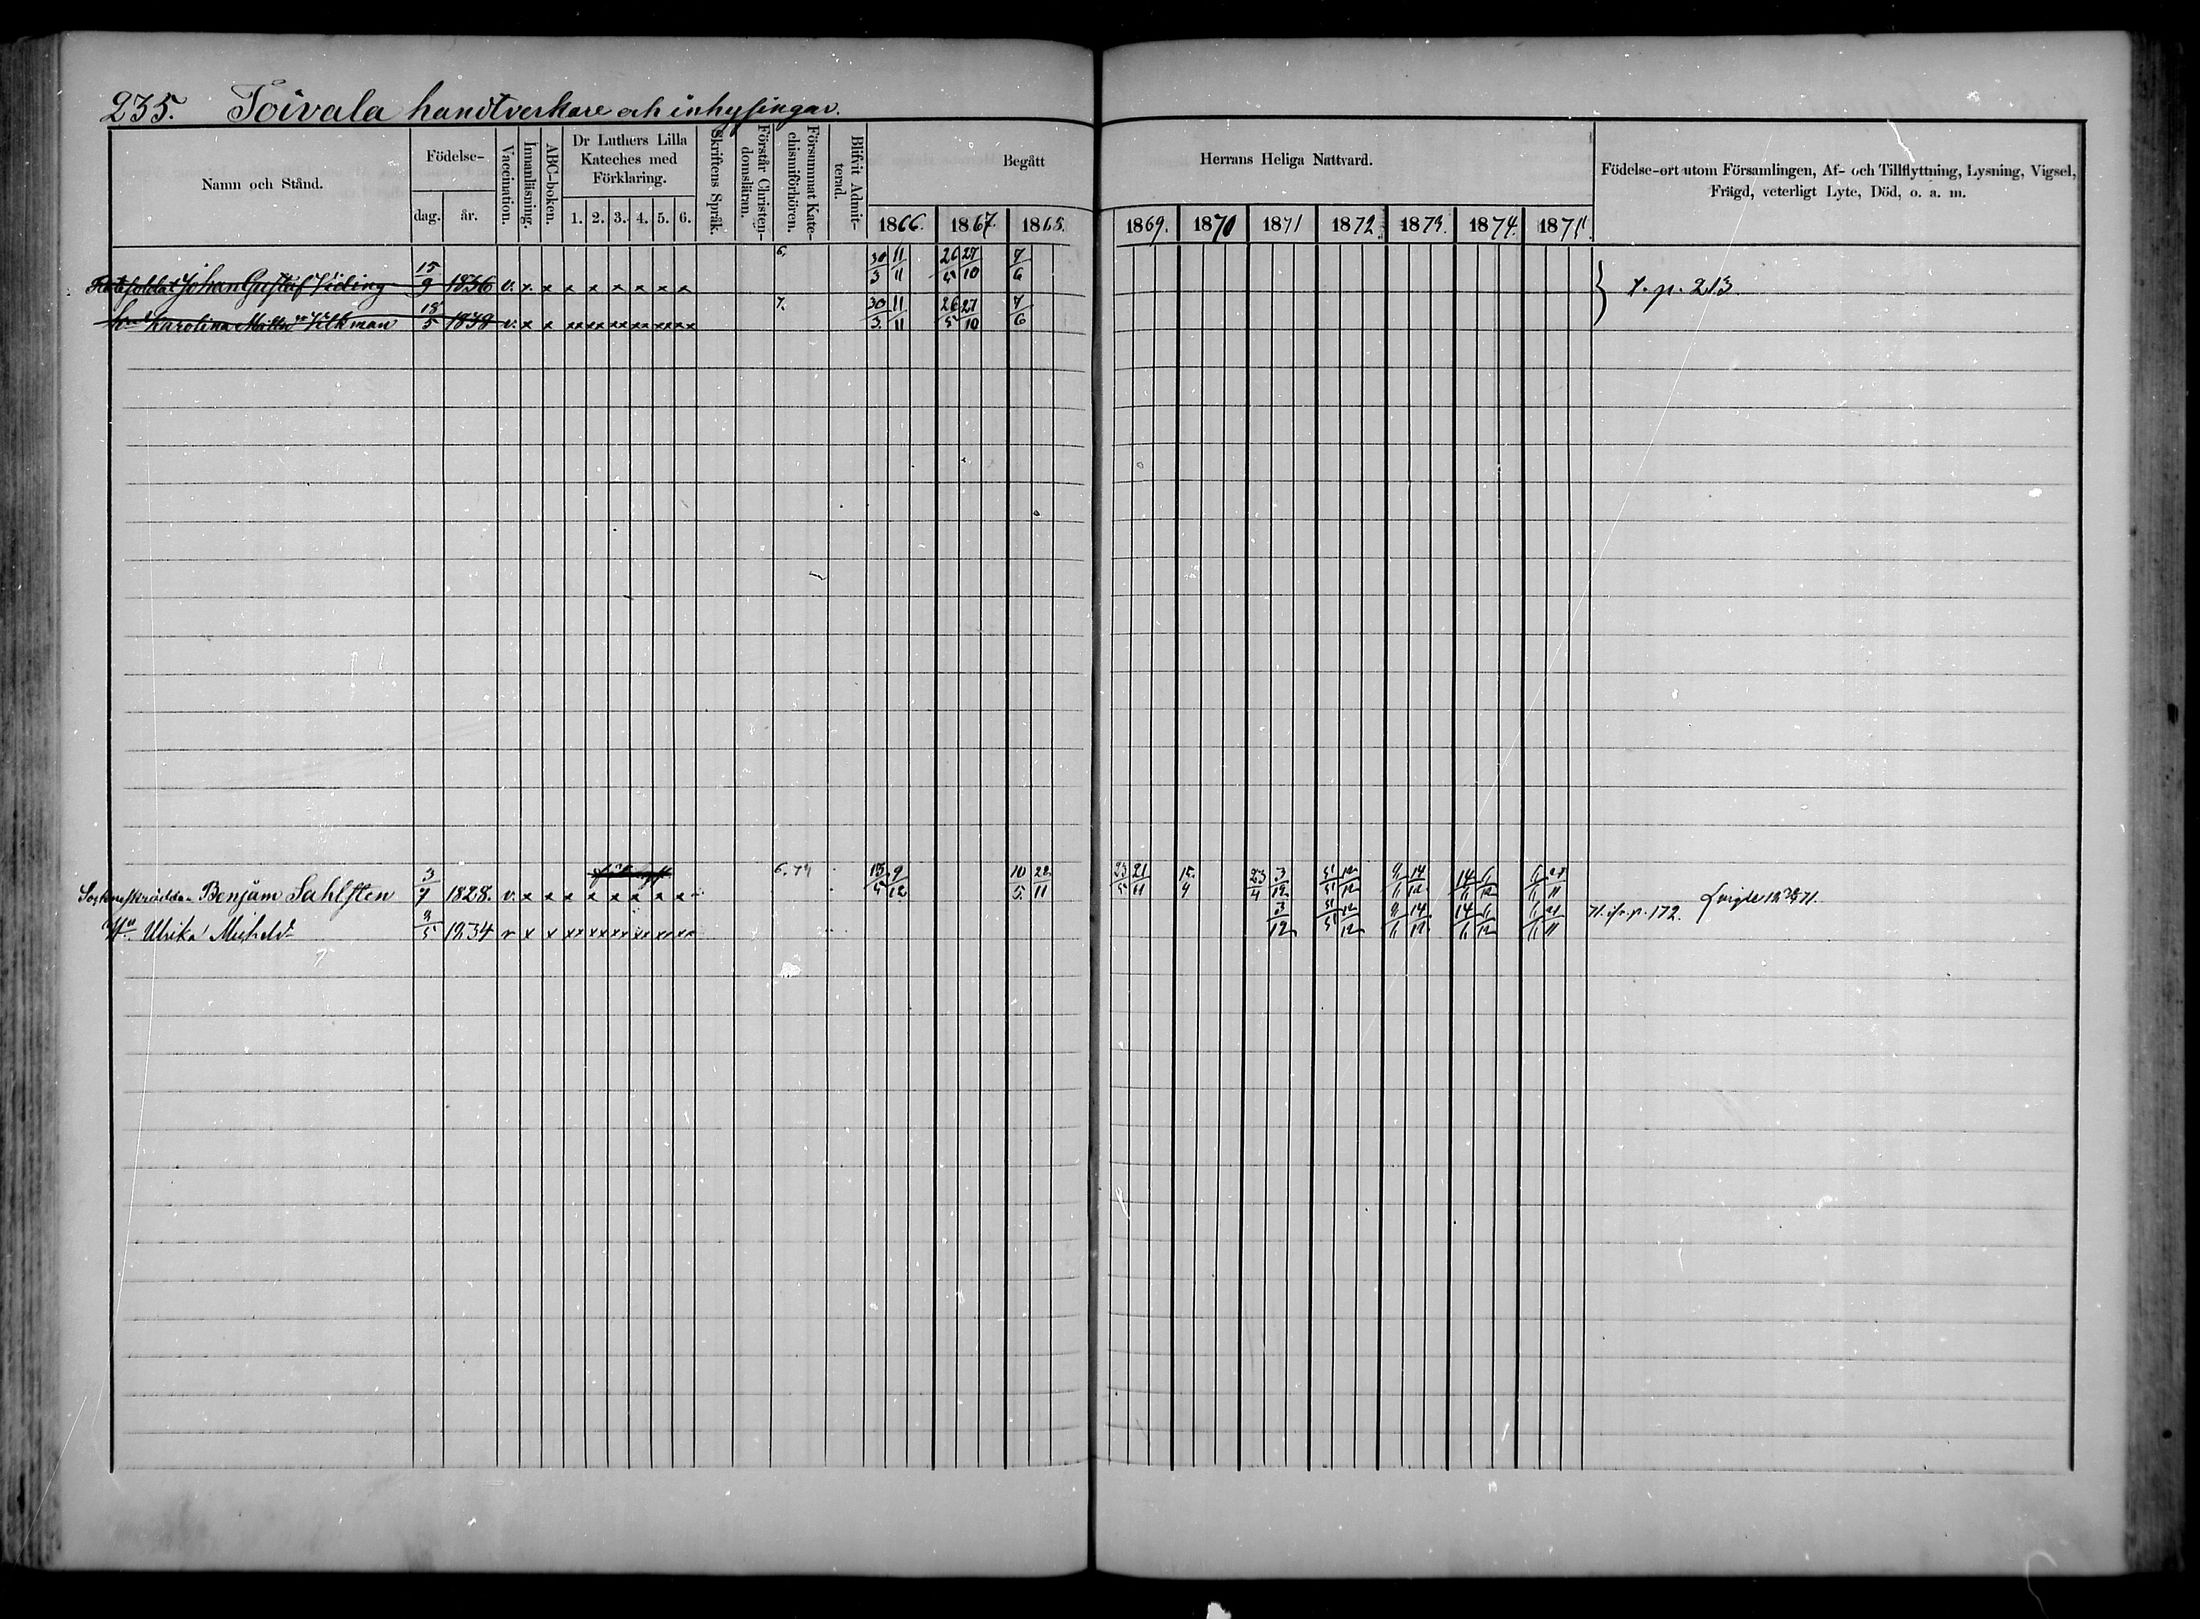 235. Toivala handtverkare och inhysingar.
Namn och Stånd.
Födelse-
dag. år.
Vaccination.
Innanläsning.
ABC-boken.
Dr Luthers Lilla Kateches med Förklaring.
1. 2. 3. 4. 5. 6.
Skriftens Språk.
Förstår Christen-domsläran.
Försummat Kate-chismiförhören.
Blifvit Admit-terad.
Begått Herrans Heliga Nattvard.
1866. 1867. 1868. 1869. 1870 1871 1872. 1873. 1874. 1875.
Födelse-ort utom Församlingen, Af- och Tillflyttning, Lysning, Vigsel,
Frägd, veterligt Lyte, Död, o. a. m.
Johan Gustaf Viding 15/9 1836 v. x x x x x x x x 6. 30/3 11/11 26/5 27/10 7/6 } p. 213
Karolina Vilkman 1839 v. x x xx xx xx xx xx xx 7. 30/3 11/11 26/5 27/10 7/6
Benjam Sahlsten 3/7 1828. v. x x x x x x x x 6. 74 9/12 10/5 22/11 23/5 21/11 15/4 23/4 3/12 14/6 6/12
Hu Ulrika 1834 v x x xx xx xx xx xx xx 3/12 14/6 6/12 p. 172.